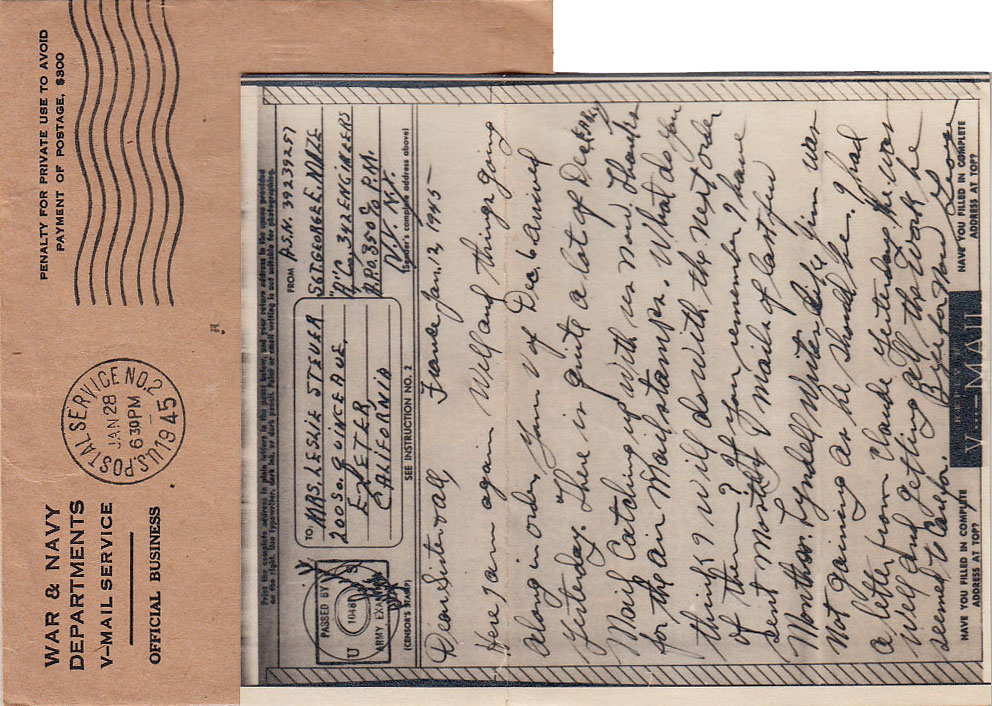 WAR & NAVY
DEPARTMENTS
V-MAIL SERVICE
OFFICIAL BUSINESS
U.S. POSTAL SERVICE NO. 2
JAN 28
6 30 PM
1945
PENALTY FOR PRIVATE USE TO AVOID
PAYMENT OF POSTAGE, $300
Print the complete address in plain letters in the panel below, and your return address in the space provided
on the right. Use typewriter, dark ink, or dark pencil. Faint or small writing is not suitable for photographing.
PASSED BY
U
10461
ARMY EXAMINER
(CENSOR'S STAMP)
TO
MRS. LESLIE STEUER
200 So. QUINCE AVE,
EXETER,
CALIFORNIA
SEE INSTRUCTION NO. 2
FROM
A.S.N. 39239257
Sgt. GEORGE E. NAIZE
"C" 342 ENGINEERS
A.P.O. 350 % P.M.
N.Y. N.Y.
(Sender's complete address above)
Dear Sister & all
France Jan. 12, 1945
Here I am again Well and things going
along in order. Your V of Dec 6 arrived
Yesterday. There is quite a lot of Dec & Nov
Mail Catching up with us now. Thanks
for the air Mail stamps. What do you
think I will do with the next order
of them? If you remember I have
sent mostly V mails of last few
Months. Lyndell writes like Jim was
Not gaining as he should be. I had
a letter from Claude Yesterday. He was
Well and getting all the Work he
seemed to Care for. Bye for Now Love
HAVE YOU FILLED IN COMPLETE
ADDRESS AT TOP?
V··· — MAIL
HAVE YOU FILLED IN COMPLETE
ADDRESS AT TOP?